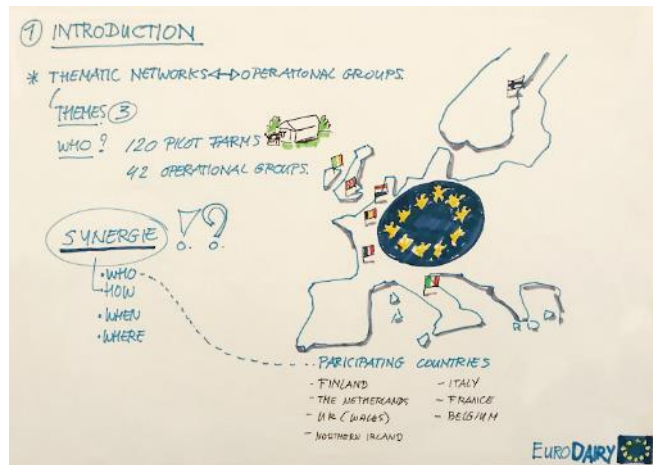 1 INTRODUCTION
* THEMATIC NETWORKS ↔ OPERATIONAL GROUPS.
THEMES 3
WHO? 120 PILOT FARMS
42 OPERATIONAL GROUPS.
SYNERGIE !?
• WHO
HOW
• WHEN
• WHERE
PARICIPATING COUNTRIES
- FINLAND
- THE NETHERLANDS
- UK (WALES)
- NORTHERN IRLAND
- ITALY
- FRANCE
- BELGIUM
EURODAIRY